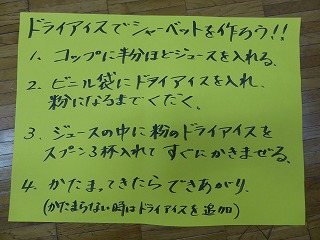 ドライアイスでシャーベットを作ろう!!
1、コップに半分ほどジュースを入れる、
2、ビニル袋にドライアイスを入れ、
粉になるまでくだく。
3、ジュースの中に粉のドライアイスを
スプーン3杯入れて すぐにかきまぜる、
4、かたまってきたら できあがり、
(かたまらない時はドライアイスを追加)